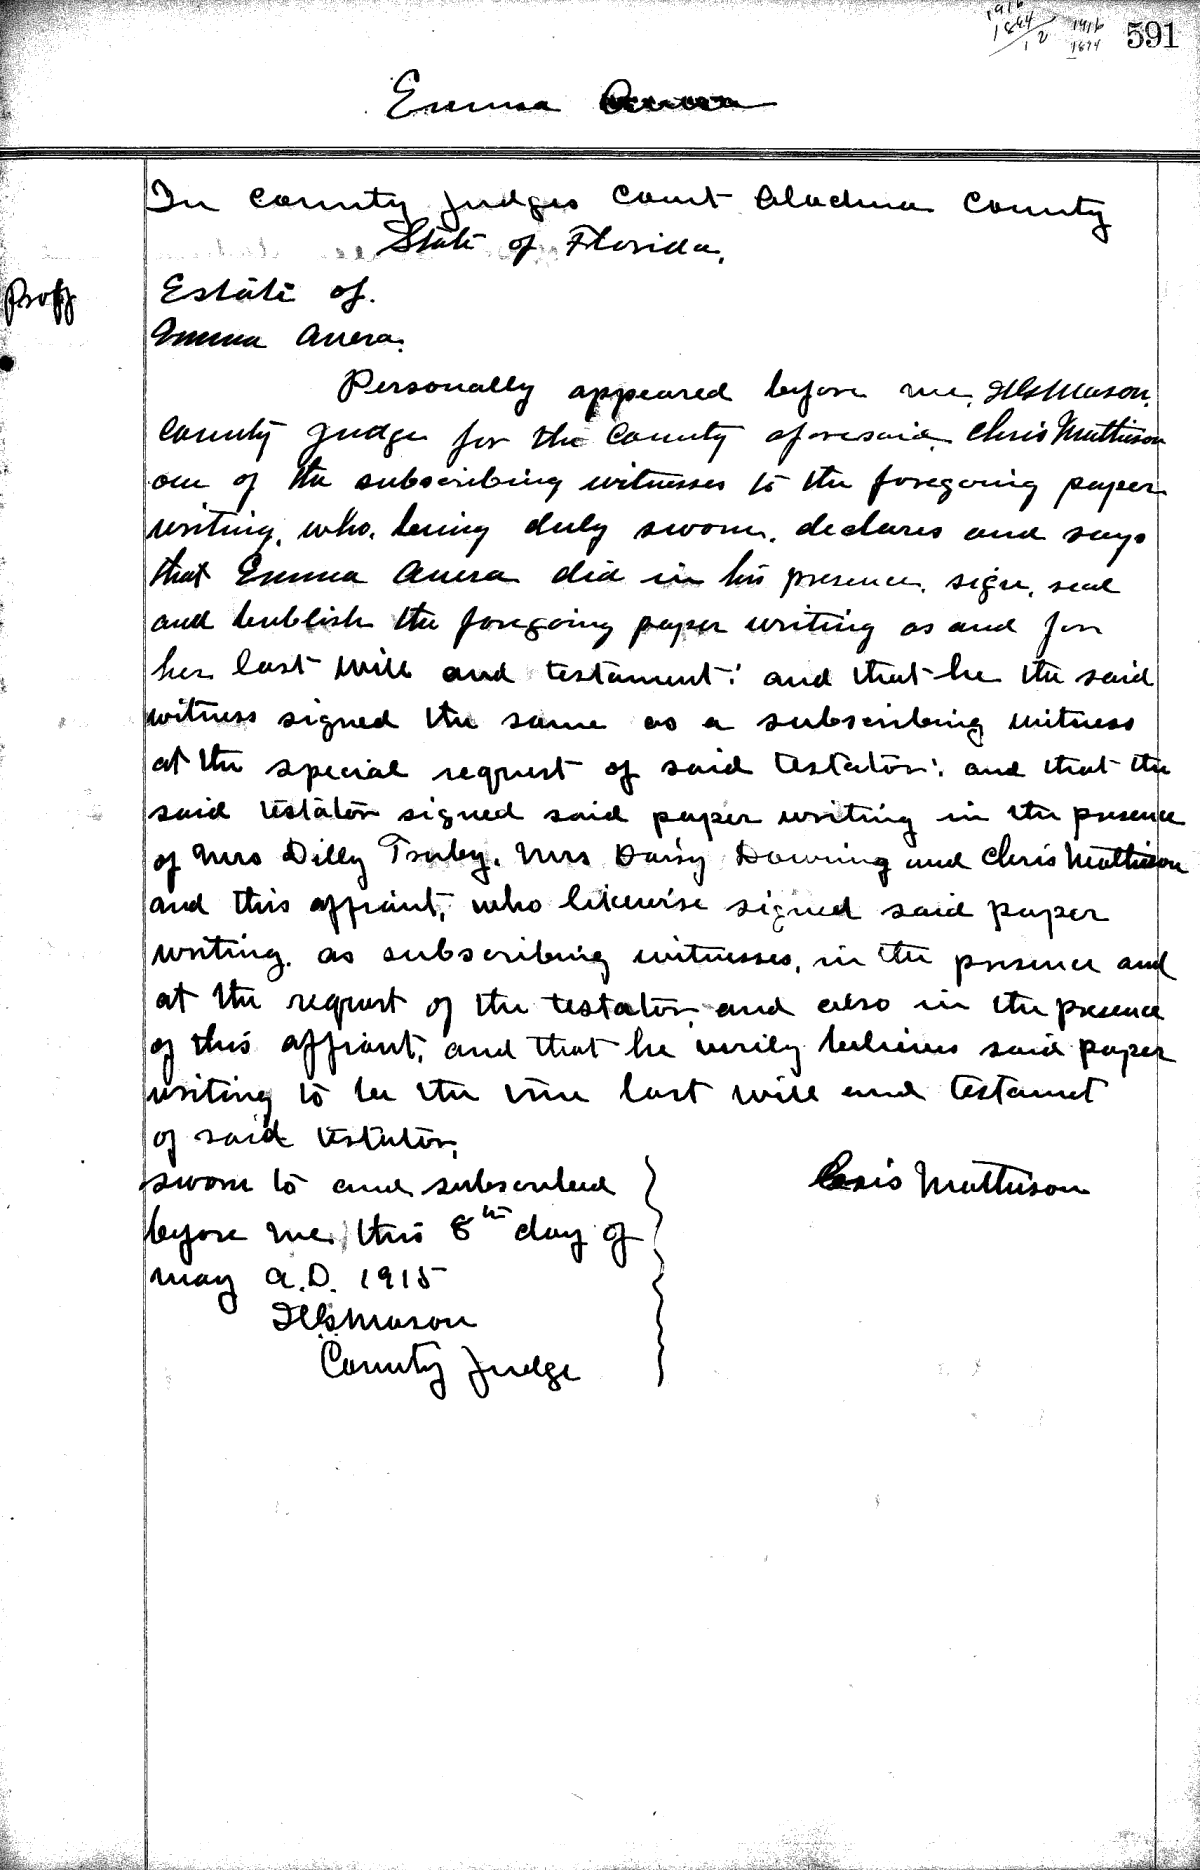 1916
1894
12
1916
1894
591
Emma
In County Judges Court Alachua County
State of Florida.
Proof
Estate of.
Emma Avera.
Personally appeared before me, H.G. Mason.
County Judge for the County aforesaid Chris Matheson
one of the subscribing witnesses to the foregoing paper
writing, who, being duly sworn, declares and says
that Emma Avera did in his presence, sign, seal
and publish the foregoing paper writing as and for
her last will and testament: and that he the said
witness signed the same as a subscribing witness
at the special request of said testator: and that the
said testator signed said paper writing in the presence
of Mrs Dilly Tsuby, Mrs Daisy Downing and Chris Matheson
and this affiant, who likewise signed said paper
writing as subscribing witnesses, in the presence and
at the request of the testator, and also in the presence
of this affiant, and that he verily believes said paper
writing to be the true last will and testamet
of said testator,
sworn to and subscribed
before me, this 8th day of
May A.D. 1915
H.G. Mason
County Judge
Chris Matheson